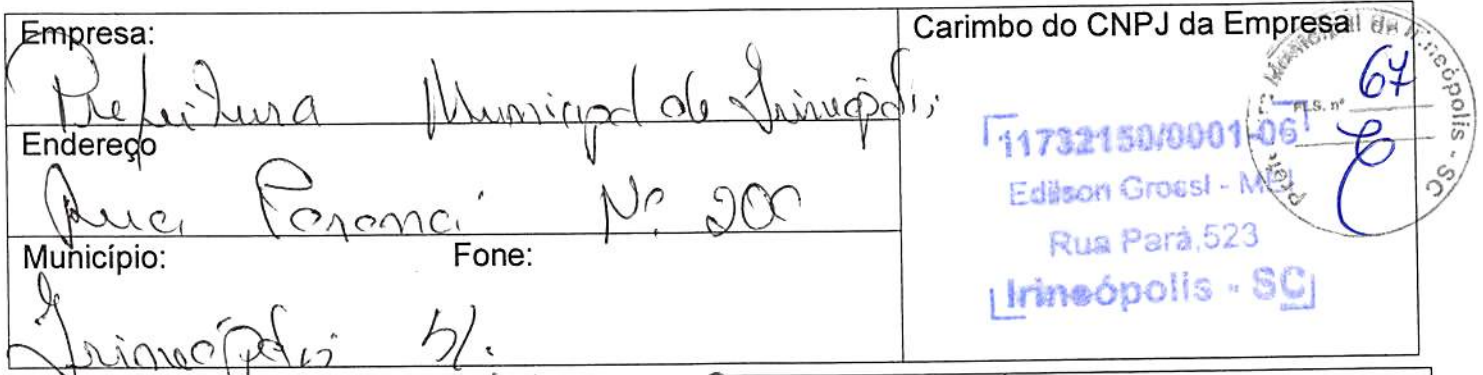 Empresa:
Prefeitura Municipal de Irineópolis
Endereço
Rua Paraná Nº 200
Município: Fone:
Irineópolis
Carimbo do CNPJ da Empresa
11732150/0001-06
Edilson Grossl - MEI
Rua Pará,523
Irineópolis - SC
Municipal de Irineópolis - SC
FLS. nº 67